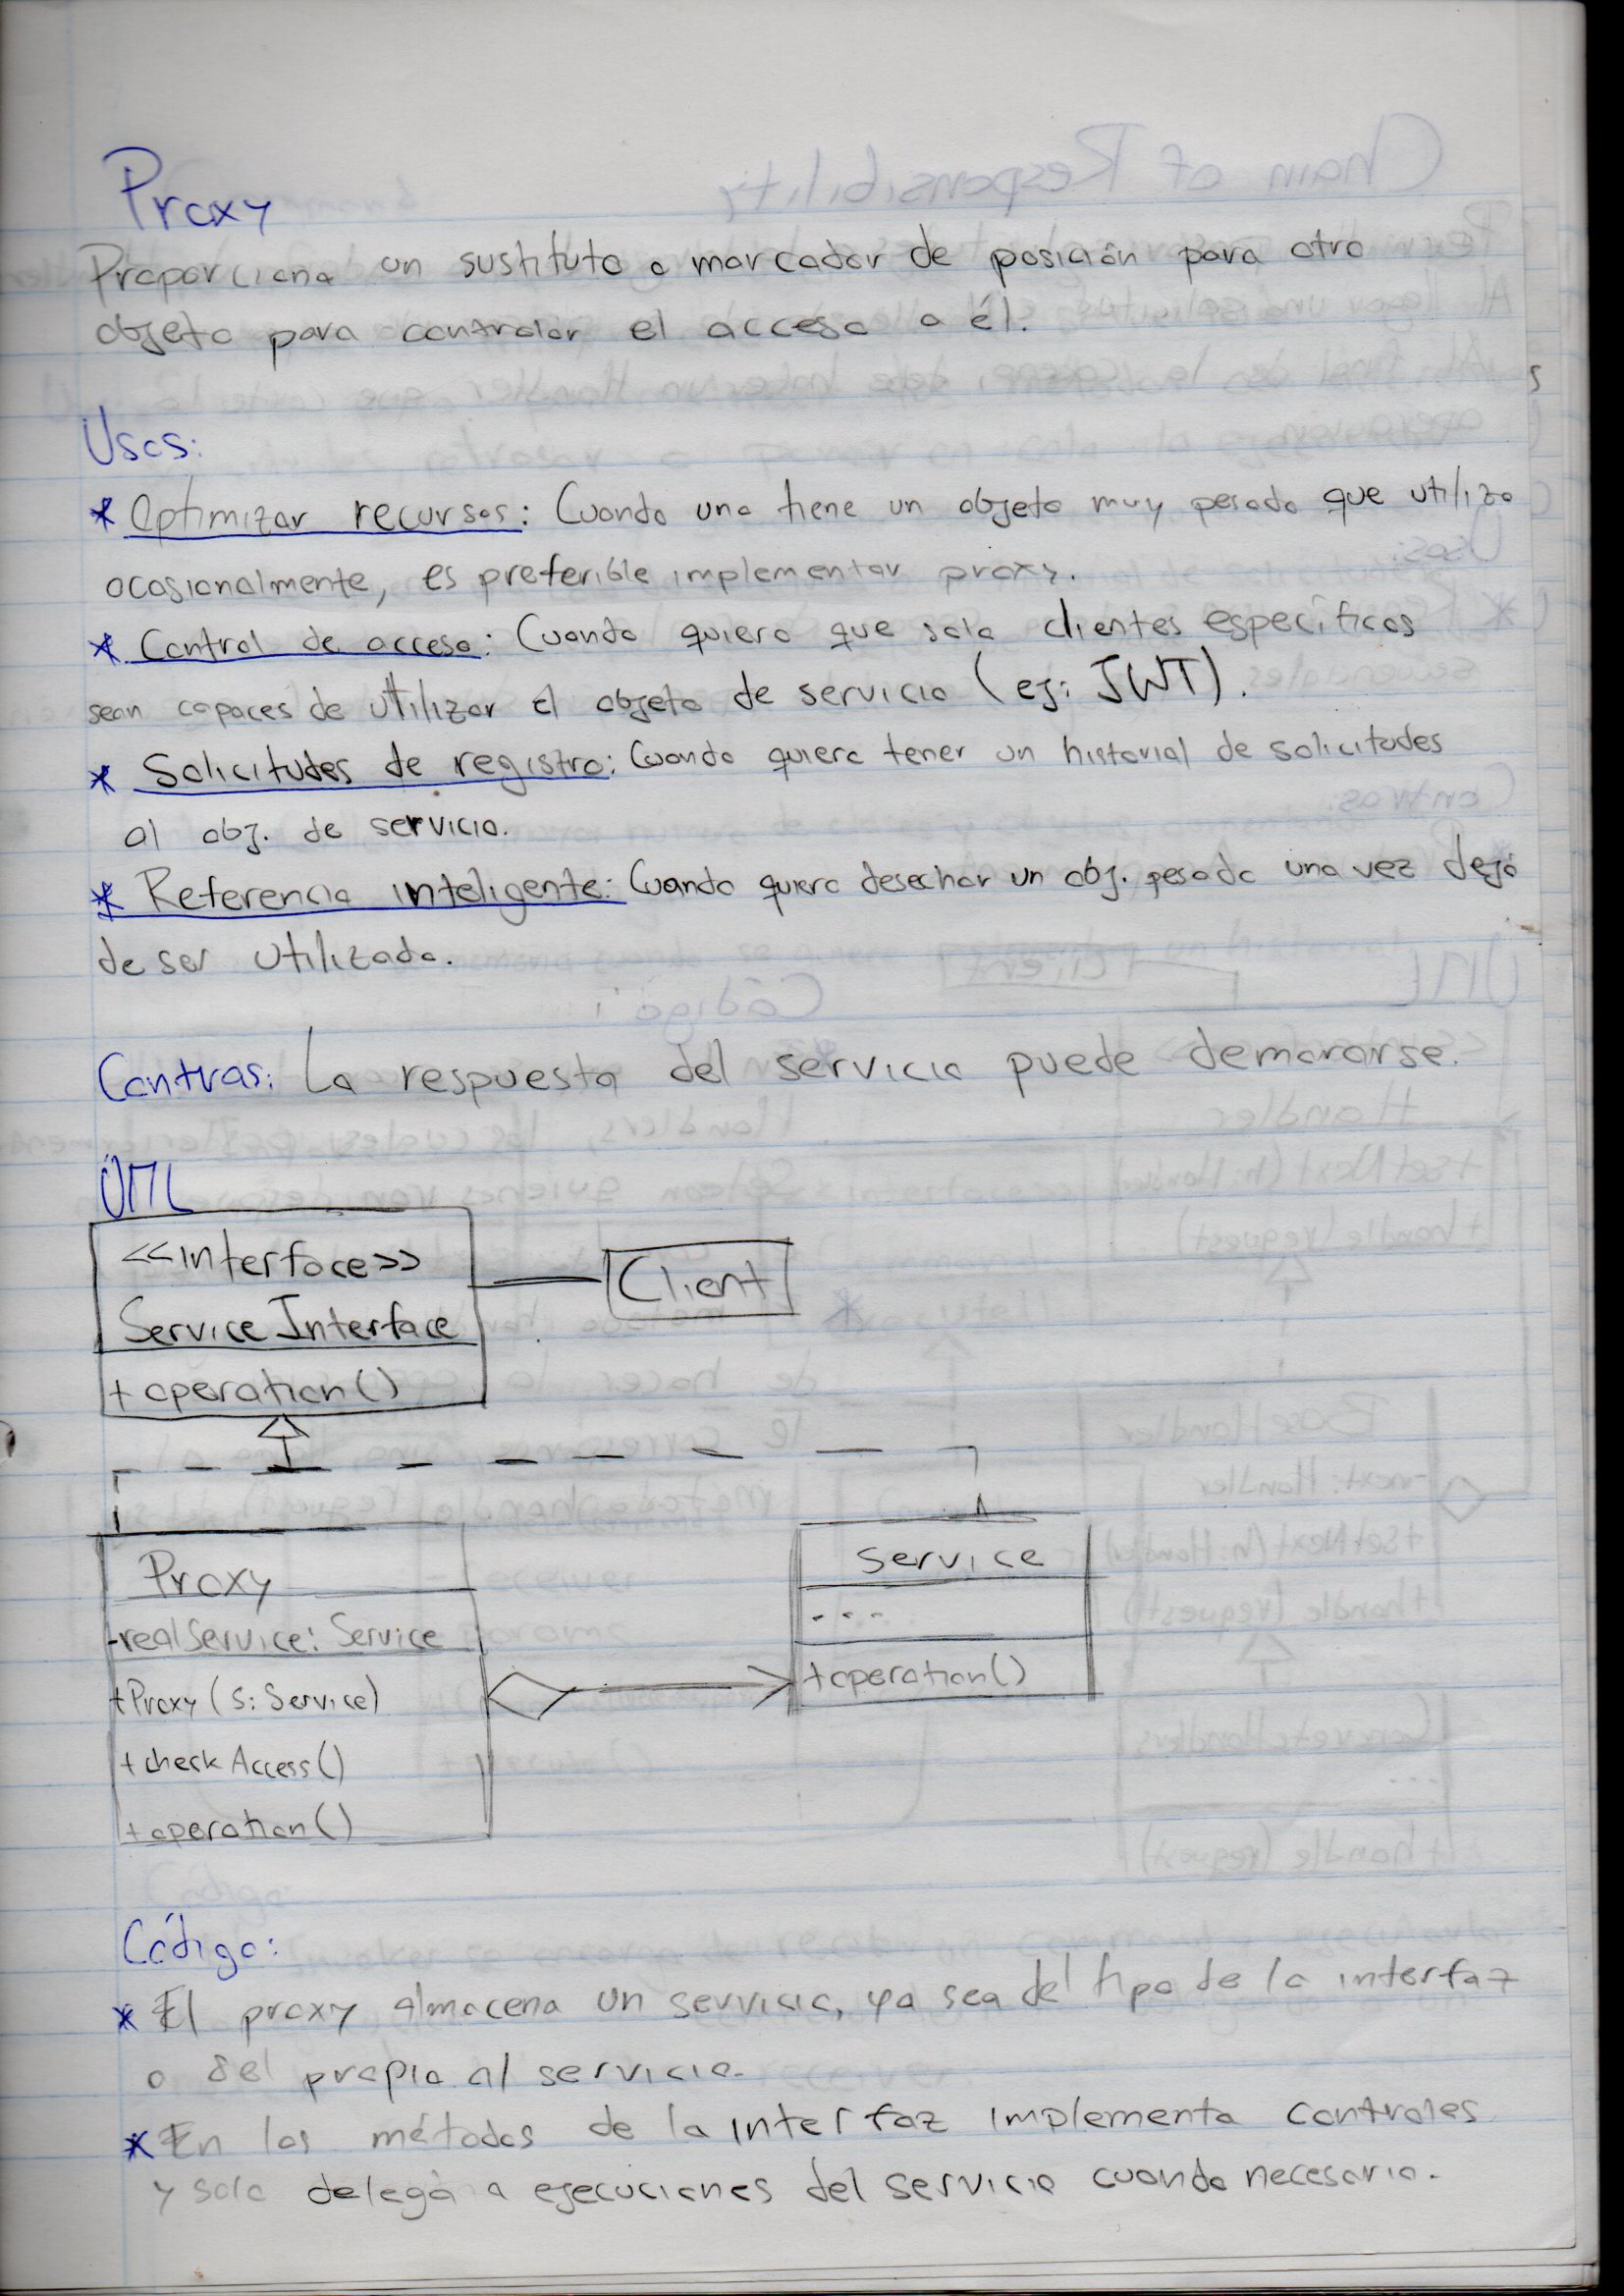 Proxy
Proporciona un sustituto o marcador de posición para otro
objeto para controlar el acceso a él.
Usos:
* Optimizar recursos: Cuando uno tiene un objeto muy pesado que utilizo
ocasionalmente, es preferible implementar proxy.
* Control de acceso: Cuando quiero que solo clientes específicos
sean capaces de utilizar el objeto de servicio (ej: JWT).
* Solicitudes de registro: Cuando quiero tener un historial de solicitudes
al obj. de servicio.
* Referencia inteligente: Cuando quiero desechar un obj. pesado una vez dejó
de ser utilizado.
Contras: La respuesta del servicio puede demorarse.
UML
<<interface>>
Service Interface
+ operation()
Client
Proxy
-realService: Service
+Proxy (s: Service)
+ check Access()
+ operation()
Service
...
+operation()
Código:
* El proxy almacena un servicio, ya sea del tipo de la interfaz
o del propio al servicio.
* En los métodos de la interfaz implementa controles
y solo delega a ejecuciones del servicio cuando necesario.